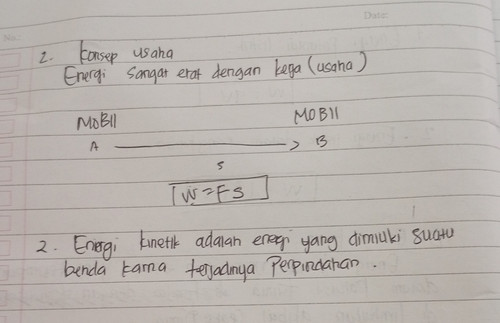 No:
Date:
2. Konsep usaha
Energi sangat erat dengan kerja (usaha)
MOBIl MOBIl
A B
s
W=FS
2. Energi kinetik adalah energi yang dimiliki suatu
benda karna terjadinya Perpindahan.